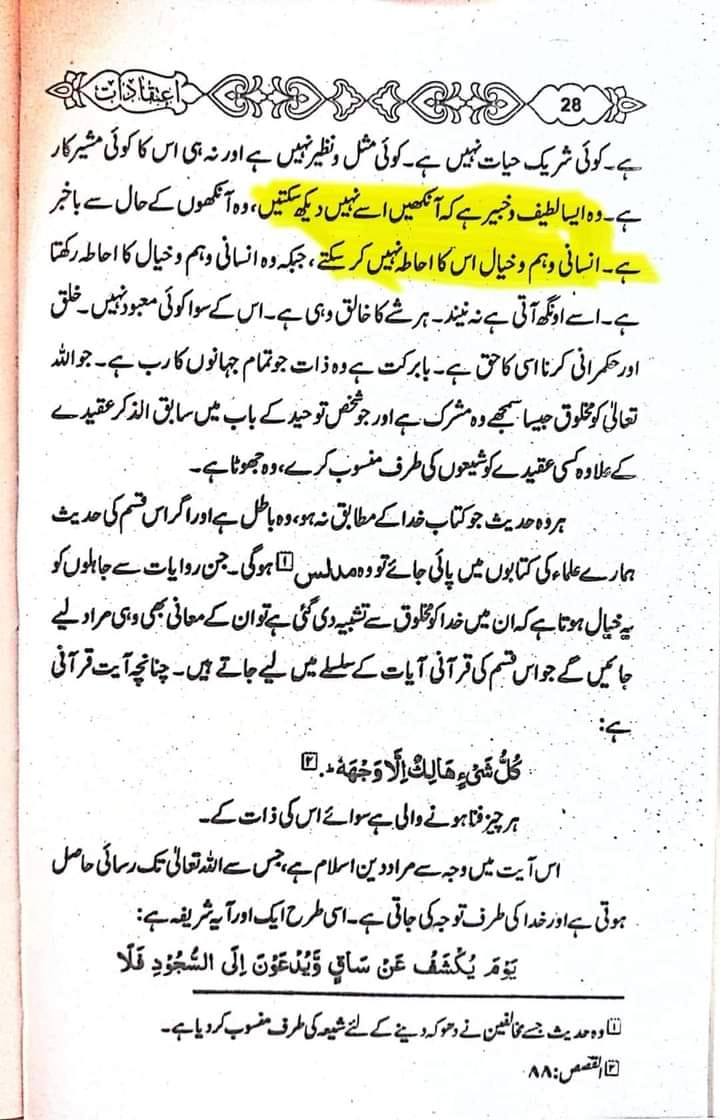 اعتقادات
28
ہے۔ کوئی شریک حیات نہیں ہے۔ کوئی مثل و نظیر نہیں ہے اور نہ ہی اس کا کوئی مشیر کار
ہے۔ وہ ایسا لطیف و خبیر ہے کہ آنکھیں اسے نہیں دیکھ سکتیں، وہ آنکھوں کے حال سے باخبر
ہے۔ انسانی وہم و خیال اس کا احاطہ نہیں کر سکتے، جبکہ وہ انسانی وہم و خیال کا احاطہ رکھتا
ہے۔ اسے اونگھ آتی ہے نہ نیند۔ ہر شے کا خالق وہی ہے۔ اس کے سوا کوئی معبود نہیں۔ خلق
اور حکمرانی کرنا اسی کا حق ہے۔ بابرکت ہے وہ ذات جو تمام جہانوں کا رب ہے۔ جو اللہ
تعالیٰ کو مخلوق جیسا سمجھے وہ مشرک ہے اور جو شخص توحید کے باب میں سابق الذکر عقیدے
کے علاوہ کسی عقیدے کو شیعوں کی طرف منسوب کرے، وہ جھوٹا ہے۔
ہر وہ حدیث جو کتاب خدا کے مطابق نہ ہو، وہ باطل ہے اور اگر اس قسم کی حدیث
ہمارے علماء کی کتابوں میں پائی جائے تو وہ مدلس [۱] ہوگی۔ جن روایات سے جاہلوں کو
یہ خیال ہوتا ہے کہ ان میں خدا کو مخلوق سے تشبیہ دی گئی ہے تو ان کے معانی بھی وہی مراد لیے
جائیں گے جو اس قسم کی قرآنی آیات کے سلسلے میں لیے جاتے ہیں۔ چنانچہ آیت قرآنی
ہے:
كُلُّ شَيْءٍ هَالِكٌ اِلَّا وَجْهَهٗ ؕ۔ [۲]
ہر چیز فنا ہونے والی ہے سوائے اس کی ذات کے۔
اس آیت میں وجہ سے مراد دین اسلام ہے، جس سے اللہ تعالیٰ تک رسائی حاصل
ہوتی ہے اور خدا کی طرف توجہ کی جاتی ہے۔ اسی طرح ایک اور آیہ شریفہ ہے:
يَوْمَ يُكْشَفُ عَنْ سَاقٍ وَّيُدْعَوْنَ اِلَى السُّجُوْدِ فَلَا
[۱] وہ حدیث جسے مخالفین نے دھوکہ دینے کے لئے شیعہ کی طرف منسوب کر دیا ہے۔
[۲] القصص: ۸۸